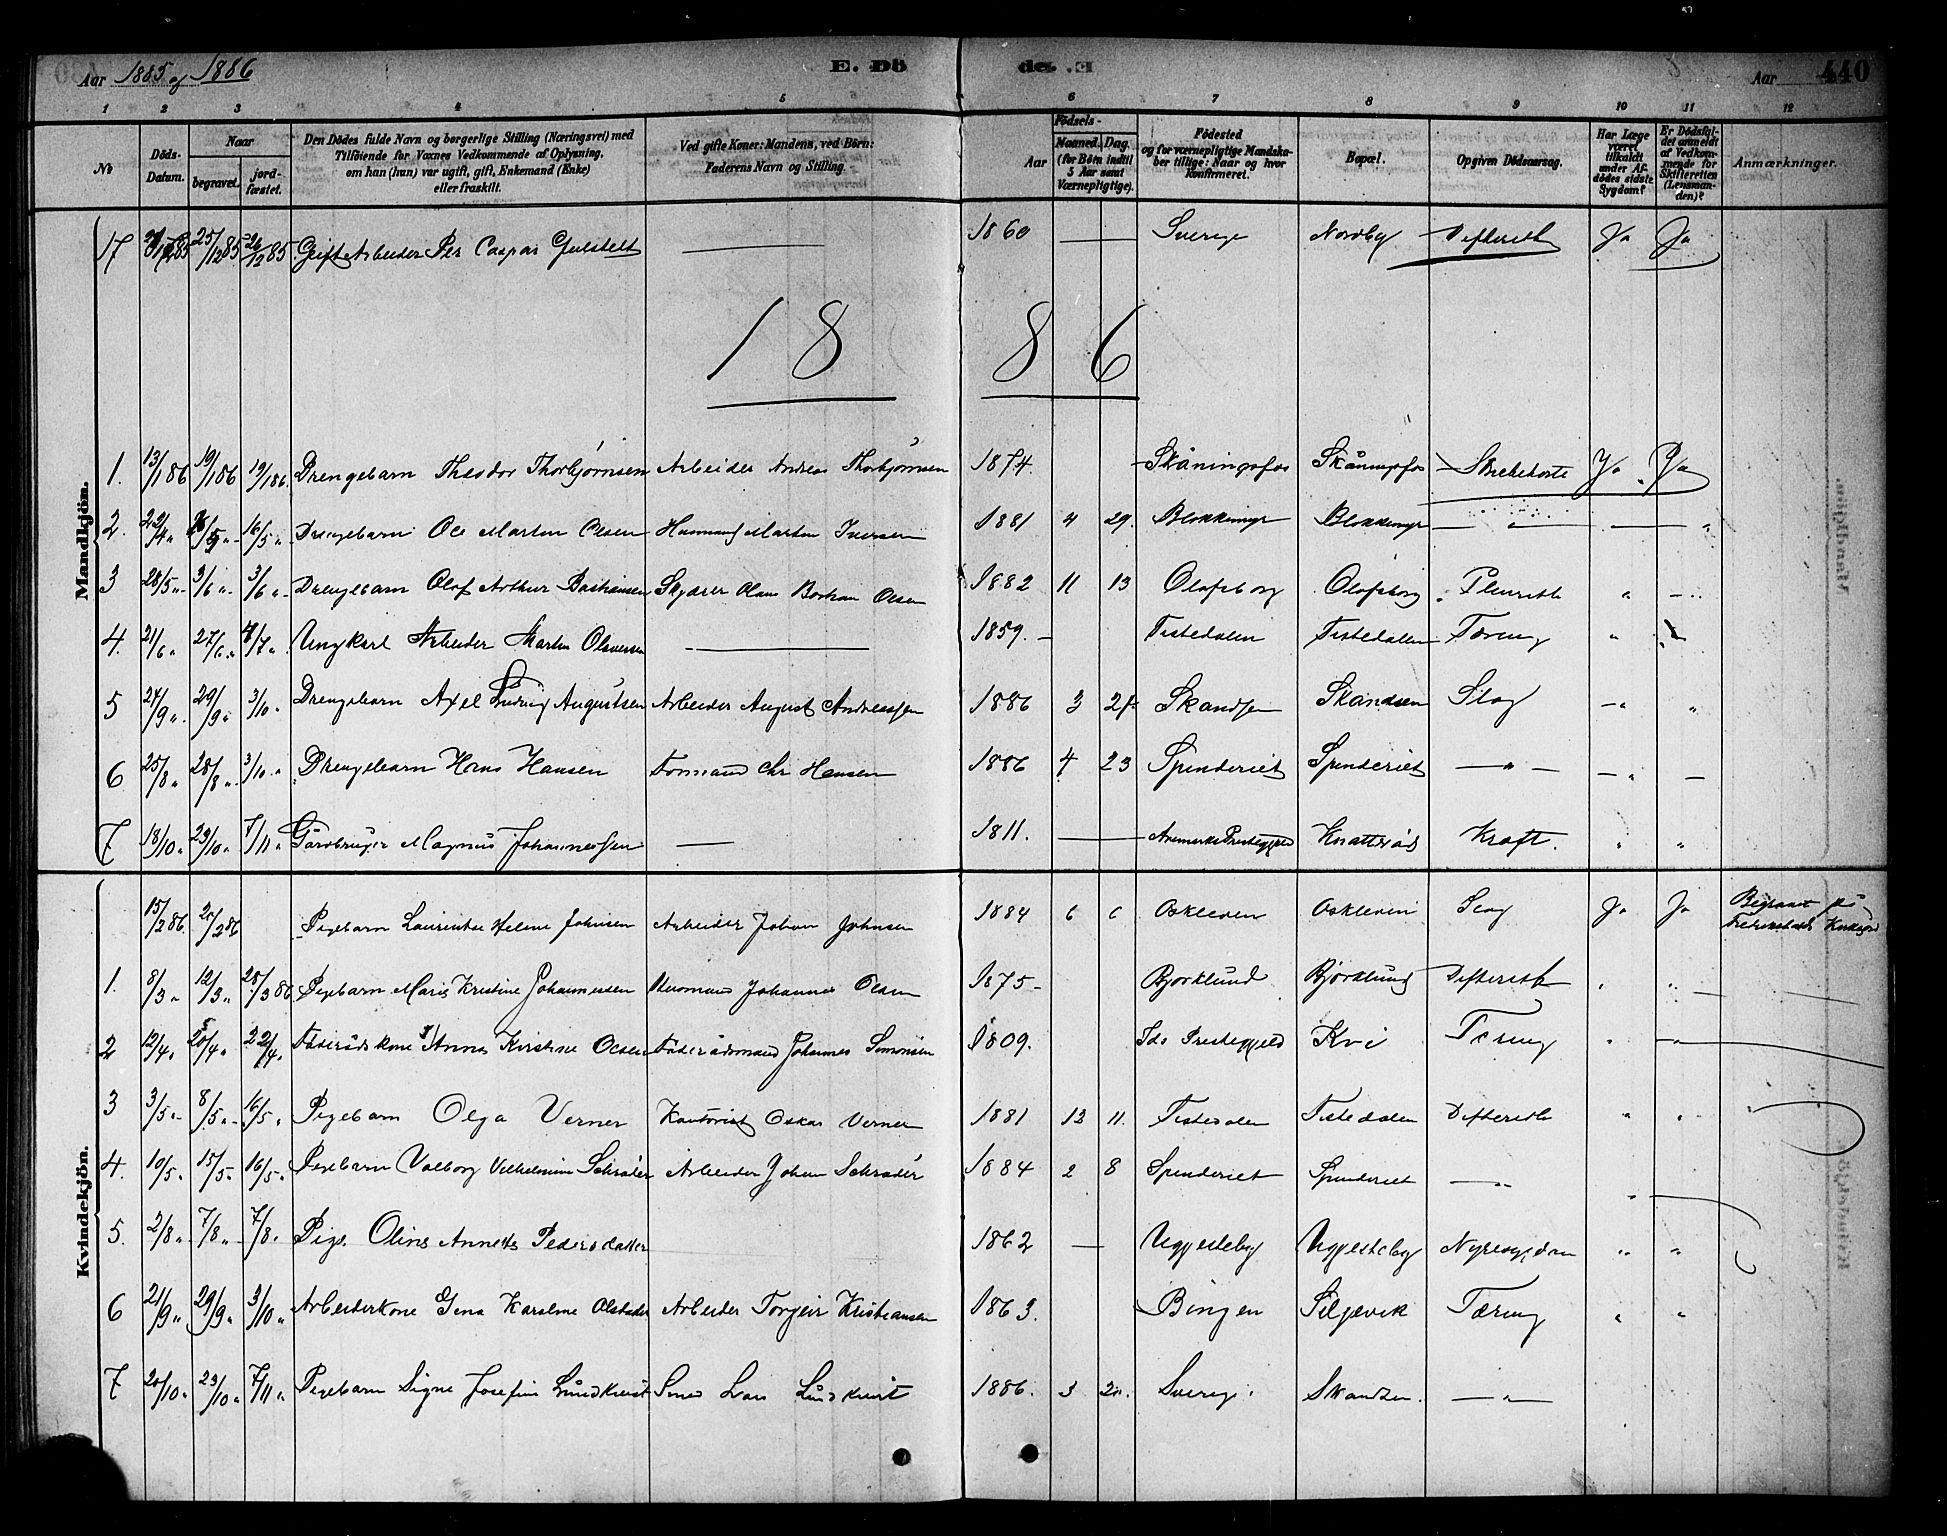 Aar 1885 og 1886
E. Dö
de. E
Aar 440
1 2 3 4 5 6 7 8 9 10 11 12
No
Döds-Datum.
Naar
begravet.
jord-fæstet.
Den Dödes fulde Navn og borgerlige Stilling (Næringsvei) med
Tilföiende for Voxnes Vedkommende af Oplysning,
om han (hun) var ugift, gift, Enkemand (Enke)
eller fraskilt.
Ved gifte Koner: Mandens, ved Börn:
Faderens Navn og Stilling.
Födsels-
Aar
Maaned. Dag.
(for Börn indtil
5 Aar samt
Værnepligtige).
Födested
og for værnepligtige Mandska-
ber tillige: Naar og hvor
konfirmeret.
Bopæl.
Opgiven Dödsaarsag.
Har Læge
været
tilkaldt
under Af-
dödes sidste
Sygdom?
Er Dödsfal-
det anmeldt
af Vedkom-
mende for
Skifteretten
(Lensman-
den)?
Anmærkninger.
17 25/12 85 26/12 85 Gift Arbeider Per Caspar — 1860 — Sverige Nordby Difterith Ja Ja
1886
Mandkjön.
1. 13/1 86 19/1 86 19/1 86. Drengebarn Theodor Thorbjørnsen Arbeider Andreas Thorbjørnsen 1874. Skåningsfos Skåningsfos Strubehoste Ja Ja
2. 22/4 " 16/5 " Drengebarn Ole Martin Olsen Husmand Martin Iversen 1881 4 29. Blokkemyr Blokkemyr — " — — "
3 28/5 " 3/6 " 3/6 " Drengebarn Olaf Arthur Bastiansen Skydser Olsen 1882 11 13 Olafsborg Olafsborg Pleurith " — "
4. 21/6 " 27/6 " /7 " Ungkarl Arbeider Martin Olavesen — 1859. — Tistedalen Tistedalen Tæring "
5 24/9 " 29/9 " 3/10 " Drengebarn Axel Ludvig Augustsen Arbeider August Andreassen 1886 3 Skandsen Skandsen Slag " "
6 25/8 " 28/8 " 3/10 " Drengebarn Hans Hansen Formand Chr Hansen 1886 4 23 Spinderiet Spinderiet — " — — " —
7 18/10 " 23/10 " 7/11 " Gårdbruger Magnus Johannessen — 1811. — Aremarks Prestegjeld Knatterød Kræft. " "
Kvindekjön.
15/2 86. 20/2 86 Pigebarn Laurentse Helene Johnsen Arbeider Johan Johnsen 1884 6 6 Oskleven Oskleven Slag Ja Ja Begravet på
Fredrikstads Kirkegrd
1. 8/3 " 12/3 " 28/3 86 Pigebarn Maris Kristine Johannesen Husmand Johannes Olsen 1875 — Bjørklund Bjørklund Difterith " " — —
2 12/4 " 20/4 " 22/4 " Føderådskone Anna Kirstine Olsen Føderådsmand Johannes Simonsen 1809. Ids Prestegjeld Kvi Tæring " "
3 3/5 " 8/5 " 16/5 " Pigebarn Olga Verner Kontorist Oskar Verner 1881 12 11. Tistedalen Tistedalen Difterith " " "
4. 10/5 " 15/5 " 16/5 " Pigebarn Valborg Vilhelmine Schrøder Arbeider Johan Schrøder 1884 2 8 Spinderiet Spinderiet — " "
5. 2/8 " 7/8 " 7/8 " Pige Oline Annette Pedersdatter 1862 — Ugjesteby Ugjestebg Nyresygdom " "
6 21/9 " 29/9 " 3/10 " Arbeiderkone Gina Karoline Olsdatter Arbeider Torgeir Kristiansen 1863. Bingen Siljevik Tæring " "
7 20/10 " 23/10 " 7/11 " Pigebarn Signe Josefine Lundkvist Smed Lars Lundkvist 1886. 3 Sverige Skandsen. — " —